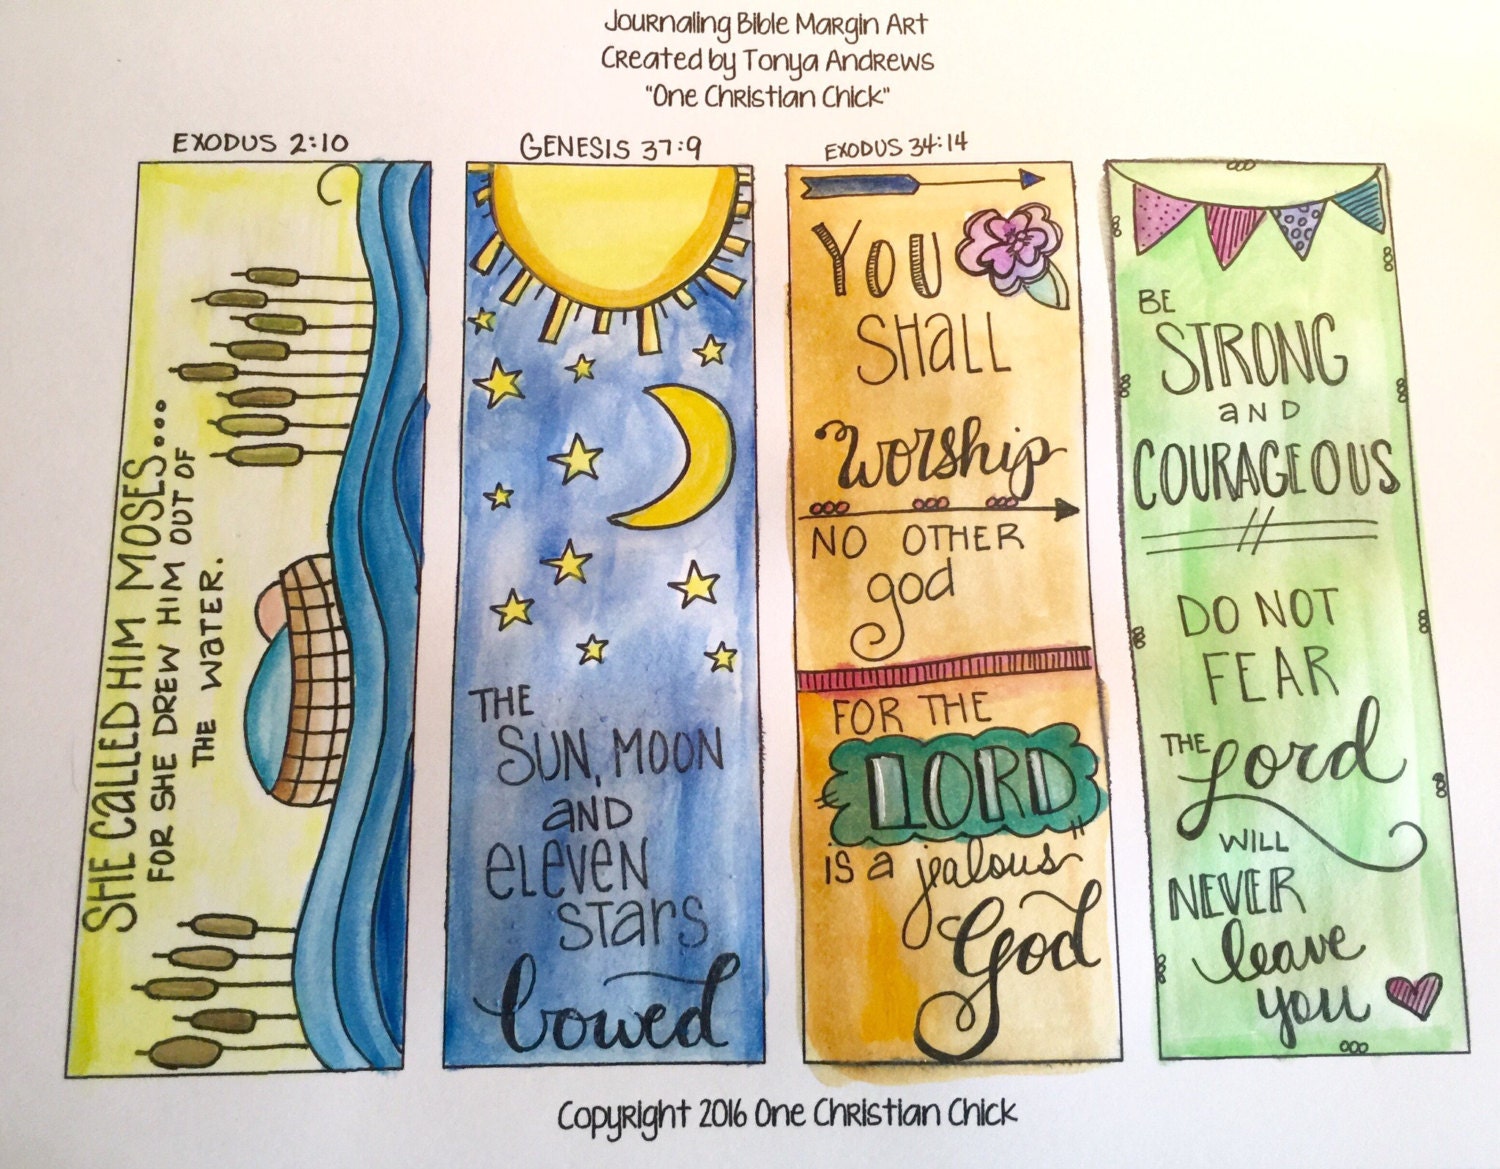 Journaling Bible Margin Art
Created by Tonya Andrews
"One Christian Chick"
EXODUS 2:10
SHE CALLED HIM MOSES...
FOR SHE DREW HIM OUT OF
THE WATER.
GENESIS 37:9
THE
SUN, MOON
AND
ELEVEN
STARS
bowed
EXODUS 34:14
YOU
SHALL
Worship
NO OTHER
god
FOR THE
LORD
IS A jealous
God
BE
STRONG
AND
COURAGEOUS
DO NOT
FEAR
THE Lord
WILL
NEVER
leave
you
Copyright 2016 One Christian Chick